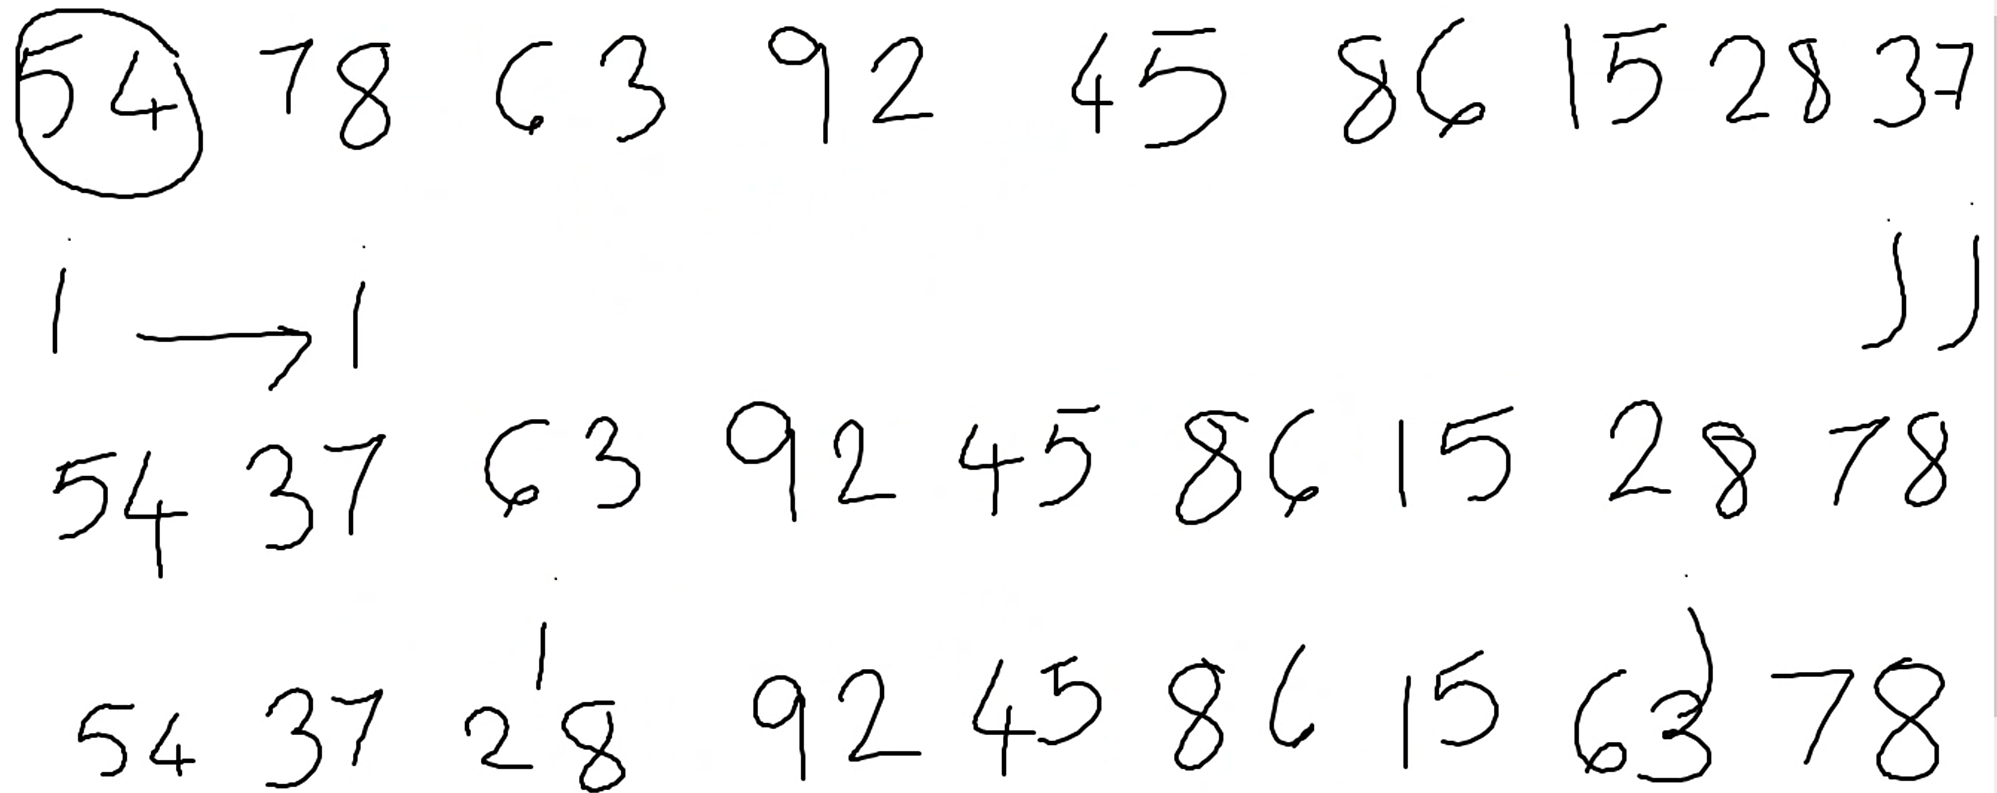 54 78 63 92 45 86 15 28 37
i → i j j
54 37 63 92 45 86 15 28 78
i j
54 37 28 92 45 86 15 63 78